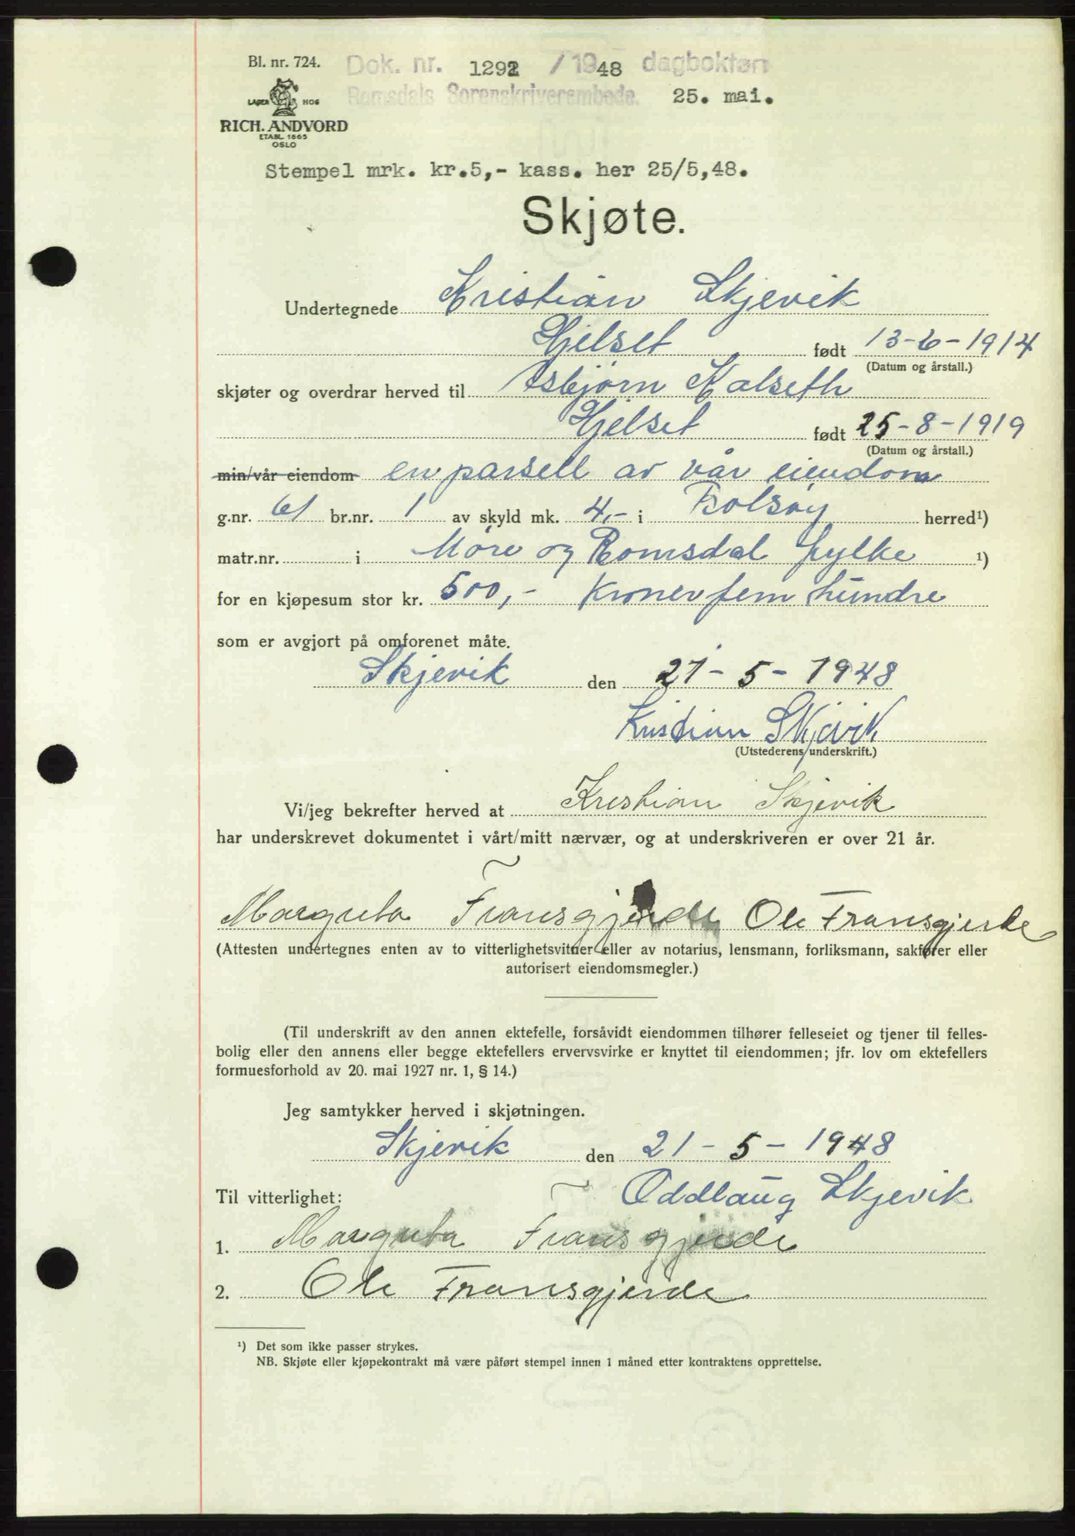 Bl. nr. 724. Dok. nr. 1292 / 1948 dagbokført
Romsdals Sorenskriverembede. 25. mai.
LAGER HOS
RICH. ANDVORD
ETABL. 1865
OSLO
Stempel mrk. kr.5,- kass. her 25/5,48.
Skjøte.
Undertegnede Kristian Skjevik
Hjelset født 13-6-1914
(Datum og årstall.)
skjøter og overdrar herved til Asbjørn Kalseth
Hjelset født 25-8-1919
(Datum og årstall.)
min/vår eiendom en parsell av vår eiendom
g.nr. 61 br.nr. 1 av skyld mk. 4,- i Bolsøy herred¹)
matr.nr. i Møre og Romsdal fylke ¹)
for en kjøpesum stor kr. 500,- Kroner fem hundre
som er avgjort på omforenet måte.
Skjevik den 21-5-1948
Kristian Skjevik
(Utstederens underskrift.)
Vi/jeg bekrefter herved at Kristian Skjevik
har underskrevet dokumentet i vårt/mitt nærvær, og at underskriveren er over 21 år.
Margreta Fransgjerde Ole Fransgjerde
(Attesten undertegnes enten av to vitterlighetsvitner eller av notarius, lensmann, forliksmann, sakfører eller
autorisert eiendomsmegler.)
(Til underskrift av den annen ektefelle, forsåvidt eiendommen tilhører felleseiet og tjener til felles-
bolig eller den annens eller begge ektefellers ervervsvirke er knyttet til eiendommen; jfr. lov om ektefellers
formuesforhold av 20. mai 1927 nr. 1, § 14.)
Jeg samtykker herved i skjøtningen.
Skjevik den 21-5-1948
Til vitterlighet: Oddlaug Skjevik
1. Margreta Fransgjerde
2. Ole Fransgjerde
¹) Det som ikke passer strykes.
NB. Skjøte eller kjøpekontrakt må være påført stempel innen 1 måned etter kontraktens opprettelse.